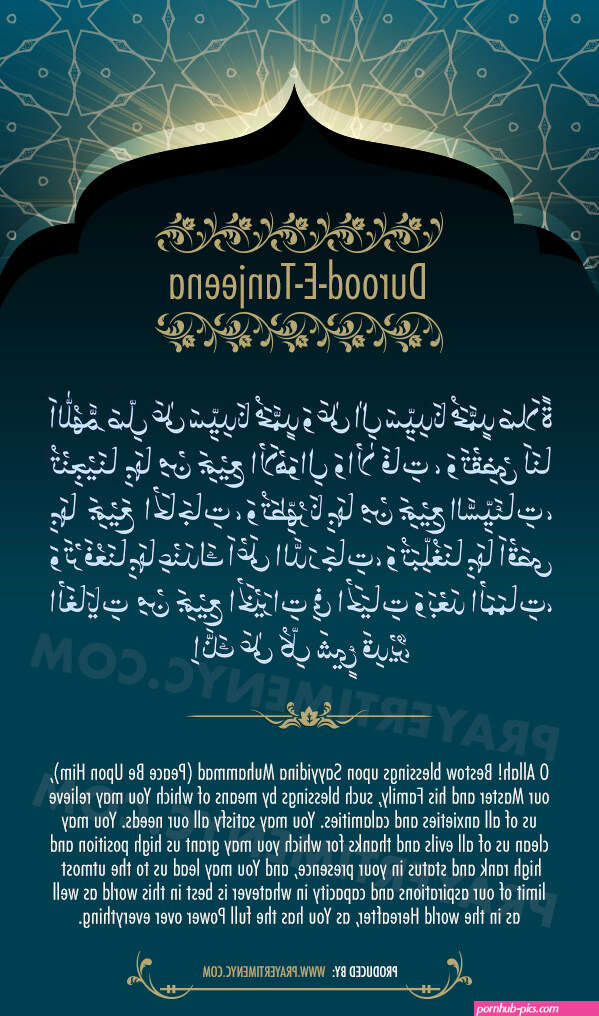 Durood-E-Tanjeena
اَللّٰهُمَّ صَلِّ عَلٰى سَيِّدِنَا مُحَمَّدٍ وَعَلٰى اٰلِ سَيِّدِنَا مُحَمَّدٍ صَلَاةً
تُنْجِيْنَا بِهَا مِنْ جَمِيْعِ الْأَهْوَالِ وَالْآفَاتِ، وَتَقْضِيْ لَنَا
بِهَا جَمِيْعَ الْحَاجَاتِ، وَتُطَهِّرُنَا بِهَا مِنْ جَمِيْعِ السَّيِّئَاتِ،
وَتَرْفَعُنَا بِهَا عِنْدَكَ اَعْلَى الدَّرَجَاتِ، وَتُبَلِّغُنَا بِهَا اَقْصَى
الْغَايَاتِ مِنْ جَمِيْعِ الْخَيْرَاتِ فِي الْحَيَاتِ وَبَعْدَ الْمَمَاتِ،
اِنَّكَ عَلٰى كُلِّ شَيْءٍ قَدِيْرٌ
PRAYERTIMENYC.COM
O Allah! Bestow blessings upon Sayyidina Muhammad (Peace Be Upon Him),
our Master and his Family, such blessings by means of which You may relieve
us of all anxieties and calamities. You may satisfy all our needs. You may
clean us of all evils and thanks for which you may grant us high position and
high rank and status in your presence, and You may lead us to the utmost
limit of our aspirations and capacity in whatever is best in this world as well
as in the world Hereafter, as You has the full Power over everything.
PRAYERTIMENYC.COM
PRODUCED BY: WWW.PRAYERTIMENYC.COM
pornhub-pics.com